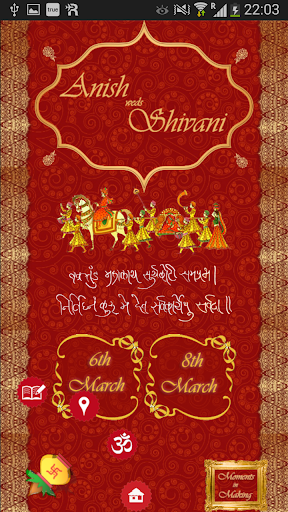 true R 22:03
Anish
weds
Shivani
वक्रतुंड महाकाय सुर्यकोटी समप्रभ।
निर्विघ्न कुरु मे देव सर्वकार्येषु सर्वदा॥
6th
March
8th
March
ॐ
Moments
in
Making